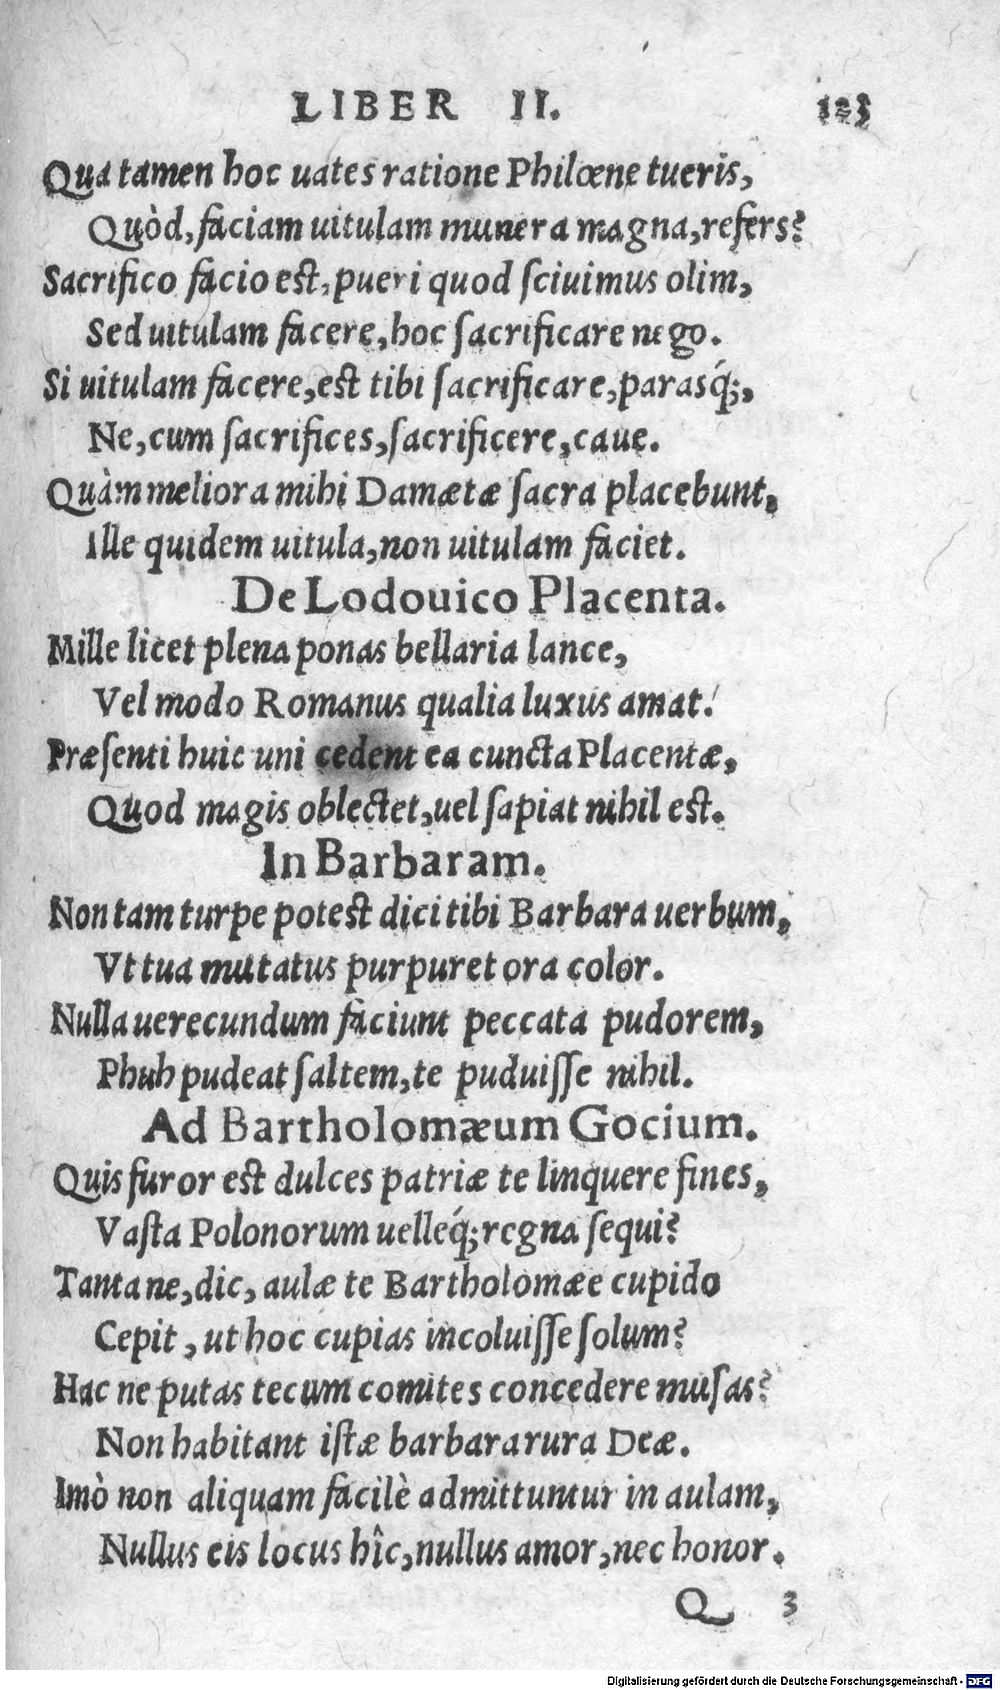 LIBER II. 123
Qua tamen hoc uates ratione Philœne tueris,
Quòd, faciam uitulam munera magna, refers?
Sacrifico facio est, pueri quod ſciuimus olim,
Sed uitulam facere, hoc ſacrificare nego.
Si uitulam facere, est tibi ſacrificare, parasq́;,
Ne, cum ſacrifices, ſacrificere, caue.
Quàm meliora mihi Damætæ ſacra placebunt,
Ille quidem uitula, non uitulam faciet.
De Lodouico Placenta.
Mille licet plena ponas bellaria lance,
Vel modo Romanus qualia luxus amat.
Præſenti huic uni cedent ea cuncta Placentæ,
Quod magis oblectet, uel ſapiat nihil est.
In Barbaram.
Non tam turpe potest dici tibi Barbara uerbum,
Vt tua mutatus purpuret ora color.
Nulla uerecundum faciunt peccata pudorem,
Phuh pudeat ſaltem, te puduiſſe nihil.
Ad Bartholomæum Gocium.
Quis furor est dulces patriæ te linquere fines,
Vaſta Polonorum uelleq́; regna ſequi?
Tanta ne, dic, aulæ te Bartholomæe cupido
Cepit, ut hoc cupias incoluiſſe ſolum?
Hac ne putas tecum comites concedere muſas?
Non habitant iſtæ barbara rura Deæ.
Imò non aliquam facilè admittuntur in aulam,
Nullus eis locus hîc, nullus amor, nec honor.
Q 3
Digitalisierung gefördert durch die Deutsche Forschungsgemeinschaft - DFG